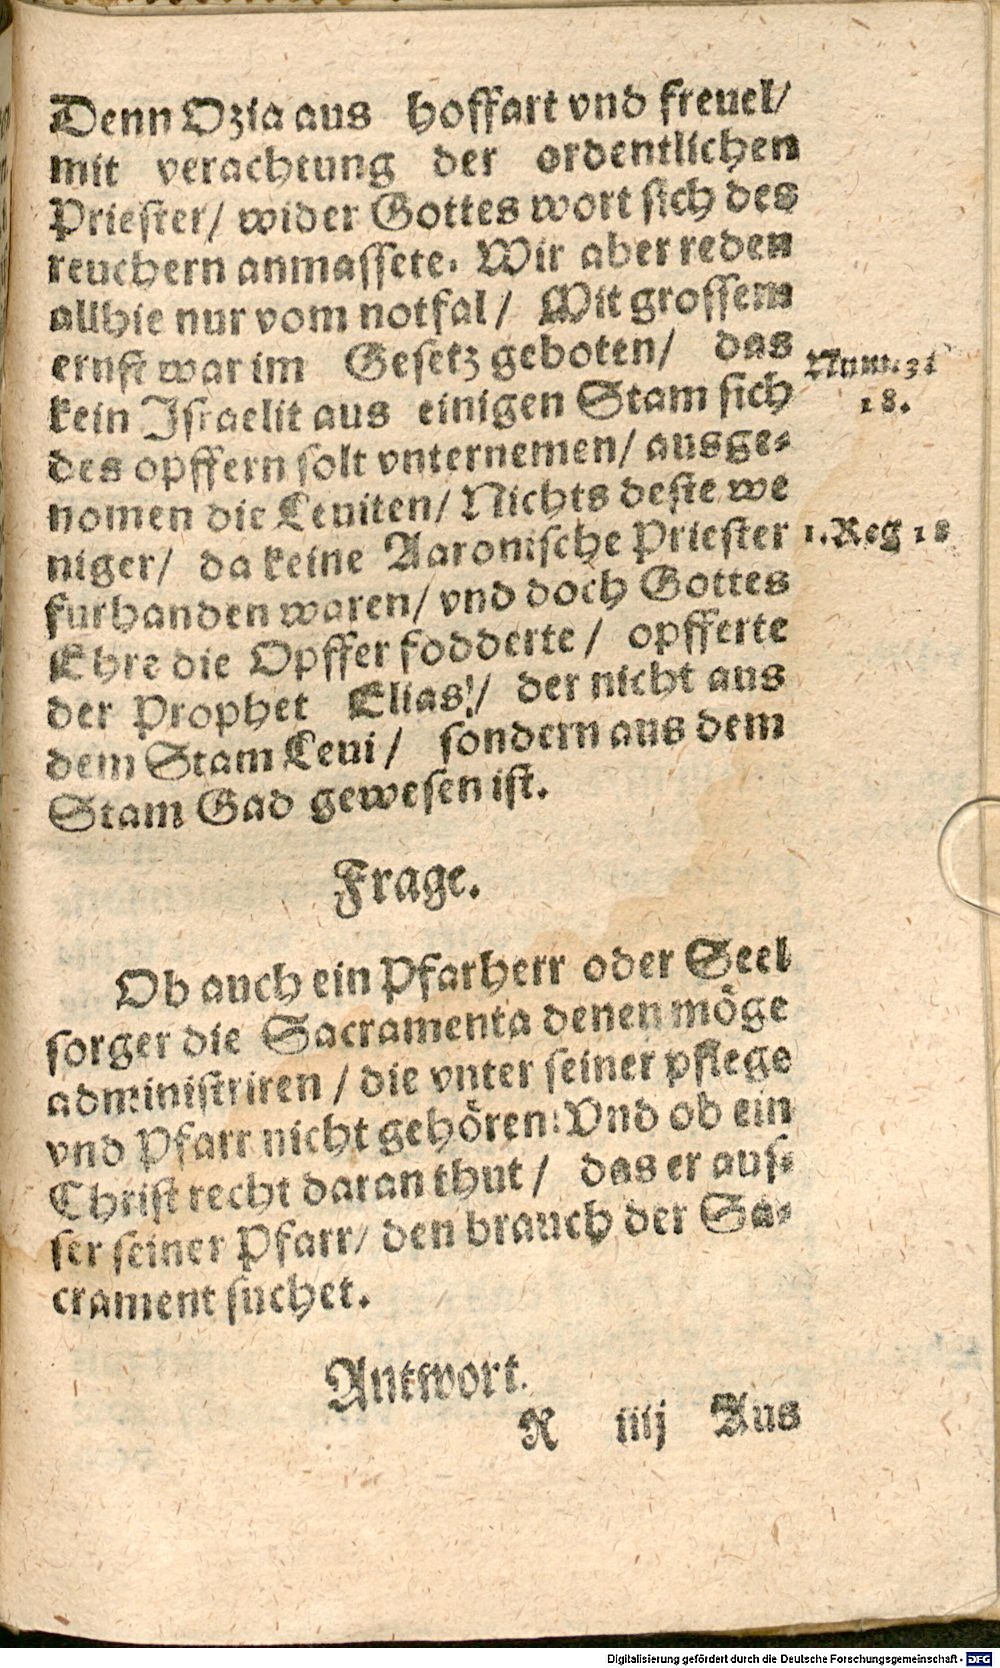 Denn Ozia aus hoffart vnd freuel/
mit verachtung der ordentlichen
Priester/ wider Gottes wort sich des
reuchern anmassete. Wir aber reden
allhie nur vom notfal/ Mit grossem
ernst war im Gesetz geboten/ das
kein Israelit aus einigen Stam sich
des opffern solt vnternemen/ ausge-
nomen die Leuiten/ Nichts deste we
niger/ da keine Aaronische Priester
furhanden waren/ vnd doch Gottes
Ehre die Opffer fodderte/ opfferte
der Prophet Elias!/ der nicht aus
dem Stam Leui/ sondern aus dem
Stam Gad gewesen ist.
Num. 3
18.
1. Reg 18
Frage.
Ob auch ein Pfarherr oder Seel
sorger die Sacramenta denen möge
administriren/ die vnter seiner pflege
vnd Pfarr nicht gehören: Vnd ob ein
Christ recht daran thut/ das er aus-
ser seiner Pfarr/ den brauch der Sa-
crament suchet.
Antwort.
R iiij Aus
Digitalisierung gefördert durch die Deutsche Forschungsgemeinschaft - DFG